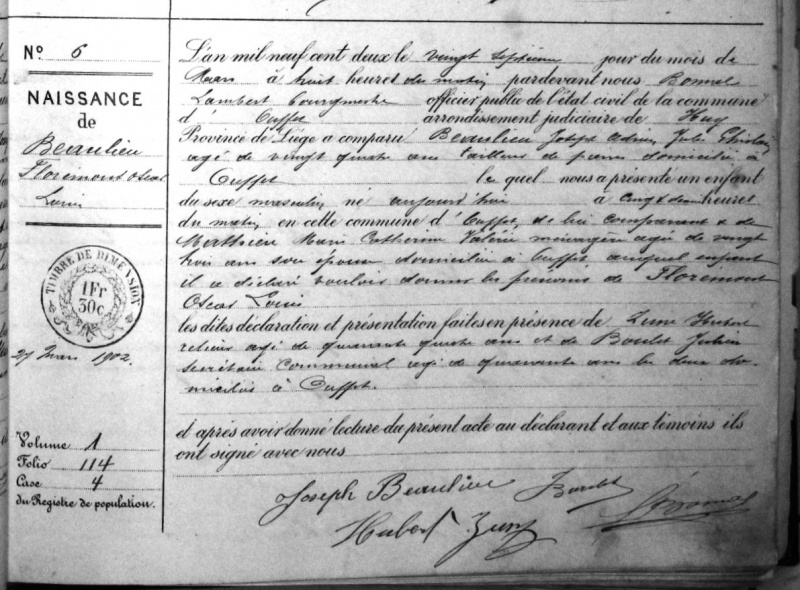 N° 6
NAISSANCE
de
Beaulieu
Florémont Oscar
Louis
TIMBRE DE DIMENSION
1 Fr
30c
27 Mars 1902.
Volume 1
Folio 114
Case 4
du Registre de population.
L'an mil neuf cent deux le vingt septième jour du mois de
Mars à huit heures du matin pardevant nous
Lambert bourgmestre officier public de l'état civil de la commune
d' Ouffet arrondissement judiciaire de Huy
Province de Liége a comparu Beaulieu Joseph Adrien Jules Ghislain
agé de vingt quatre ans tailleur de pierres domicilié à
Ouffet le quel nous a présenté un enfant
du sexe masculin né aujourd'hui à cinq heures
du matin en cette commune d' Ouffet, de lui comparant & de
Mathieu Marie Catherine Valérie ménagère agée de vingt
trois ans son épouse domiciliée à Ouffet auquel enfant
il a déclaré vouloir donner les prénoms de Florémont
Oscar Louis
les dites déclaration et présentation faites en présence de Hubert
agé de quarante quatre ans et de Boulet
secrétaire communal agé de quarante ans les deux do-
miciliés à Ouffet.
et après avoir donné lecture du présent acte au déclarant et aux témoins ils
ont signé avec nous
Joseph Beaulieu Boulet
Hubert